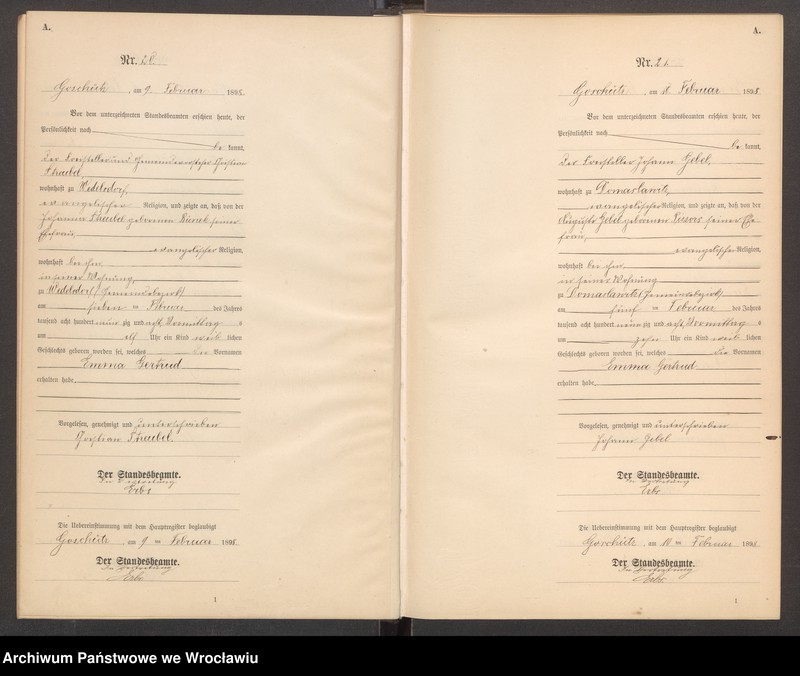 A.
Nr. 20
Goschütz, am 9. Februar 1898
Vor dem unterzeichneten Standesbeamten erschien heute, der
Persönlichkeit nach
be kannt,
der Freisteller und Gemeindevorsteher
wohnhaft zu Wedelsdorf
evangelischer Religion, und zeigte an, daß von der
Johanna geborenen seiner
Ehefrau,
evangelischer Religion,
wohnhaft bei ihm
in seiner Wohnung
zu Wedelsdorf Gemeindebezirk
am sieben ten Februar des Jahres
tausend acht hundert neun zig und acht Vormittag s
um elf Uhr ein Kind weib lichen
Geschlechts geboren worden sei, welches die Vornamen
Emma Gertrud
erhalten habe.
Vorgelesen, genehmigt und unterschrieben
Der Standesbeamte.
In Vertretung
Erbs
Die Uebereinstimmung mit dem Hauptregister beglaubigt
Goschütz, am 9 ten Februar 1898
Der Standesbeamte.
In Vertretung
Erbs
1
A.
Nr. 21
Goschütz, am Februar 1898
Vor dem unterzeichneten Standesbeamten erschien heute, der
Persönlichkeit nach
be kannt,
der Freisteller Johann Gebel,
wohnhaft zu Domaslawitz,
evangelischer Religion, und zeigte an, daß von der
Auguste Gebel geborenen seiner Ehe-
frau,
evangelischer Religion,
wohnhaft bei ihm
in seiner Wohnung
zu Domaslawitz Gemeindebezirk
am fünf ten Februar des Jahres
tausend acht hundert neun zig und acht Vormittag s
um zehn Uhr ein Kind weib lichen
Geschlechts geboren worden sei, welches die Vornamen
Emma Gertrud
erhalten habe.
Vorgelesen, genehmigt und unterschrieben
Johann Gebel
Der Standesbeamte.
In Vertretung
Erbs
Die Uebereinstimmung mit dem Hauptregister beglaubigt
Goschütz, am ten Februar 1898
Der Standesbeamte.
In Vertretung
Erbs.
1
Archiwum Państwowe we Wrocławiu